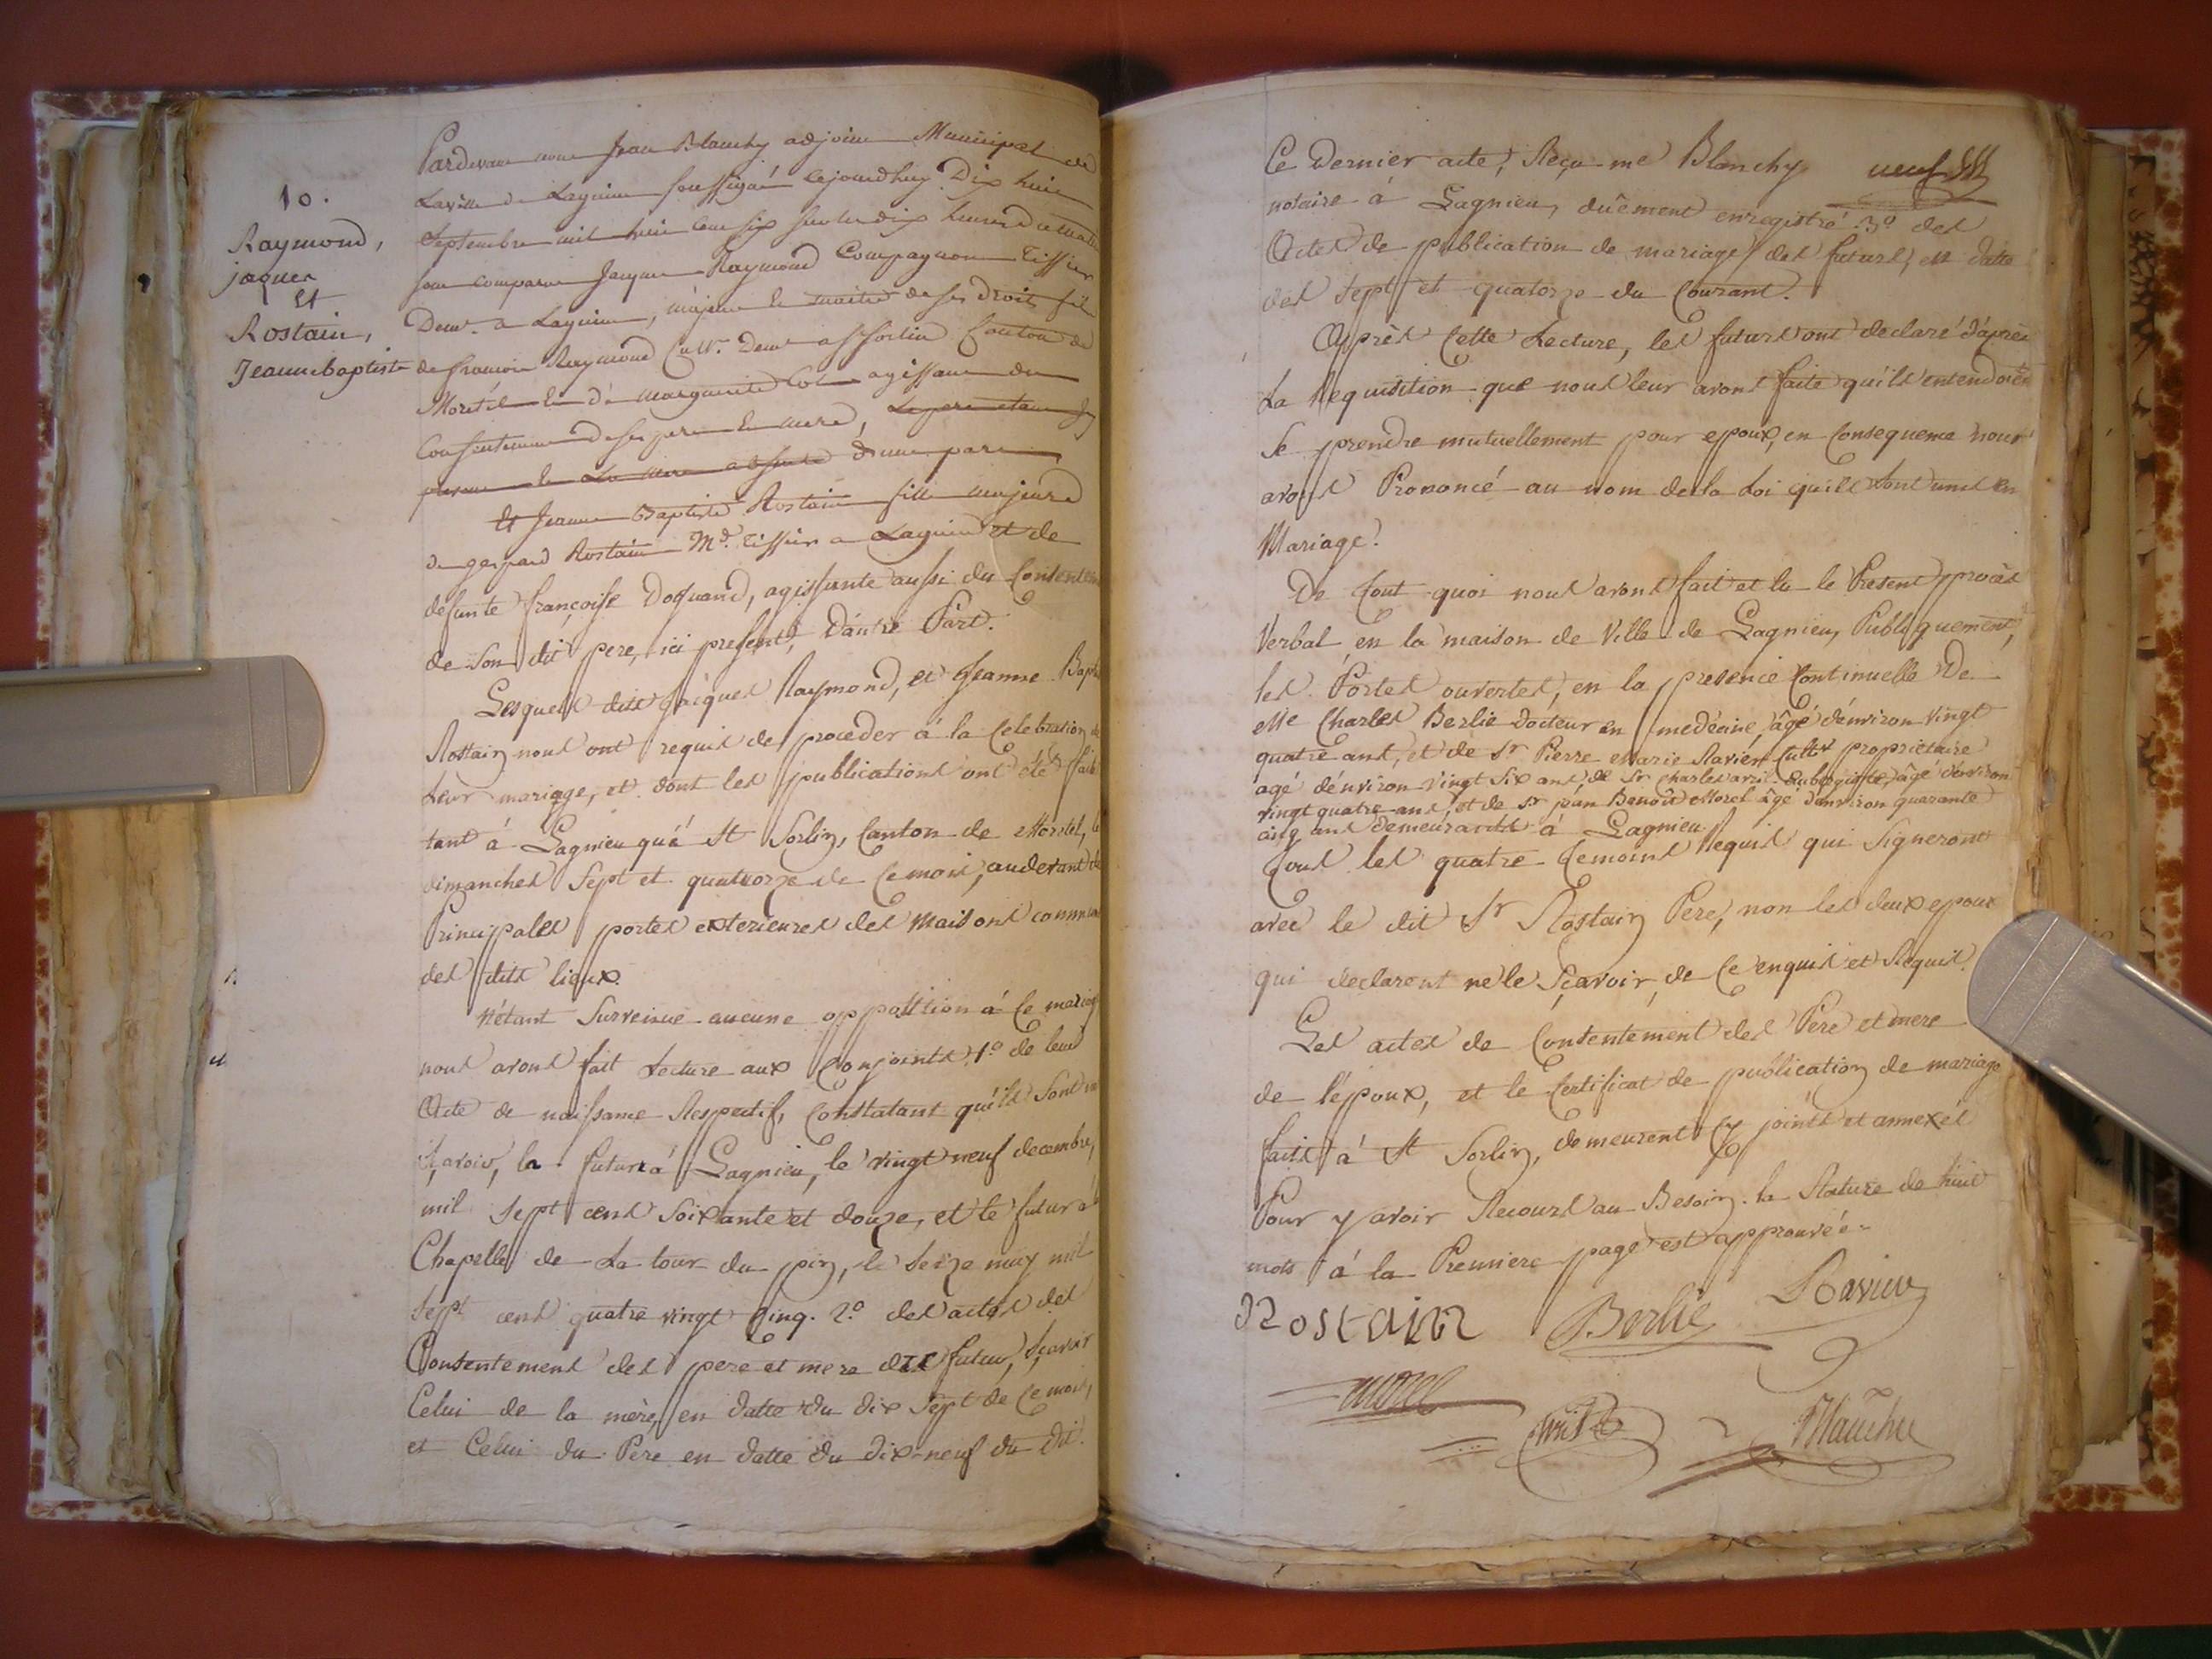 10.
Raymond,
jaques
Et
Rostain,
Jeannebaptiste
Pardevant nous Jean Blanchy adjoint Municipal de
La ville de Lagnieu soussigné cejourdhuy Dix huit
Septembre mil huit cent six sur les dix heures du matin
sont comparus Jaques Raymond Compagnon Tissier
Demt. a Lagnieu, majeur et maitre de ses Droits fils
de françois Raymond Cultr. Demt a St Sorlin Canton de
Morétel et de marguerite agissant du
Consentement de ses pere et mere, Le pere etant
present et La mere absente d'une part
Et Jeanne Baptiste Rostain fille majeure
de gaspard Rostain Md. Tissier a Lagnieu et de
defunte françoise Doquand, agissante aussi du Consentem
de Son dit pere, ici present, D'autre Part.
Lesquels dits Jacques Raymond, et Jeanne Bapt
Rostain nous ont requis de proceder á la Celebration de
Leur mariage, et dont les publications ont été faite
tant á Lagnieu qu'á St Sorlin, Canton de Morétel, le
dimanches Sept et quatorze de Ce mois, audevant de
Principales portes exterieures des Maisons commune
des dits lieux.
N'étant Survenue aucune opposition á Ce mariage
nous avons fait Lecture aux Conjoints, 1.º de leurs
Acte de naissance Respectif, Constatant qu'ils Sont né
Sçavoir, la future á Lagnieu, le vingt neuf decembre,
mil Sept cens Soixante et douze, et le futur á
Chapelle de La tour du pin, le Seize may mil
Sept cens quatre vingt Cinq. 2.º des actes des
Consentemens des pere et mere du futur, Sçavoir
Celui de la mère, en datte du dix Sept de Ce mois,
et Celui du Pere en datte du dix-neuf du dit.
Ce Dernier acte, Reçu me Blanchy
notaire á Lagnieu, duêment enregistré. 3º des
Actes de publication de mariage des futurs, en datte
des Sept et quatorze du Courant.
Après Cette Lecture, les futurs ont declaré d'après
La Requisition que nous leur avons faite qu'ils entendoien
Se prendre mutuellement pour epoux, en Consequence nous
avons Prononcé au nom de la Loi qu'ils Sont unis en
Mariage.
De tout quoi nous avons fait et lu le Present procès
Verbal en la maison de Ville de Lagnieu, Publiquement,
les Portes ouvertes, en la presence Continuelle De
Me Charles Berlie Docteur en medécine, âgé d'environ vingt
quatre ans, et de Sr Pierre Marie Ravier Cultr propriétaire
agé d'environ vingt Six ans, de Sr Charles Avril âgé d'environ
vingt quatre ans, et de Sr jean Benoît Morel âgé d'environ quarante
cinq ans demeurants á Lagnieu
tous les quatre temoins Requis qui Signeront
avec le dit Sr Rostain Pere, non les deux epoux
qui declarent ne le Sçavoir, de Ce enquis et Requis.
Les actes de Consentement des Pere et mere
de l'époux, et le Certificat de publication de mariage
faits á St Sorlin, demeurent Cy joints et annexés
Pour y avoir Recours au Besoin. la Rature de huit
mots á la Premiere page est approuvée.
Rostain Berlie Ravier
morel
Avril Blanchy